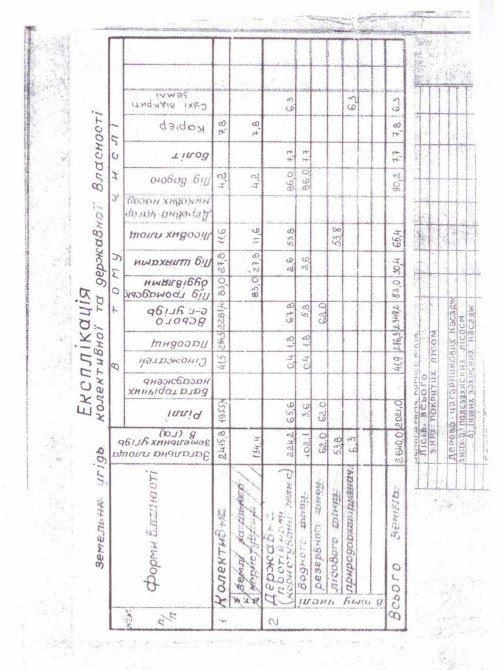 Експлікація
земельних угідь колективної та державної власності
№№ п/п
форми власності
Загальна площа земельних угідь в (га)
в тому числі
Рілля
Багаторічних насаджень
Сіножатей
Пасовищ
Всього с-г угідь
Під громадськ будівлями
Під шляхами
Лісових площ
Деревно-чагар никових насад
Під водою
Боліт
Кар'єр
Сухі відкриті землі
1 Колективна 2415,8 1955,4 41,5 83,0 27,8 11,6 4,2 7,8
в т.ч. землі загального користування 134,4 83,0 27,8 11,6 4,2 7,8
2 Державна постійний (користувачі)
224,2 65,6 0,4 1,8 67,8 2,6 53,8 86,0 7,7 6,3
в тому числі
водного фонду 102,1 3,6 0,4 1,8 5,8 2,6 86,0 7,7
резервного фонду 62,0 62,0 62,0
лісового фонду 53,8 53,8
природоохоп признач. 6,3 6,3
Всього земель: 2640,0 2021,0 41,9 83,0 30,4 65,4 90,2 7,7 7,8 6,3
Лісів, всього
з них покритих лісом
Дерево-чагарникових насадж
б) інших захисних насадж